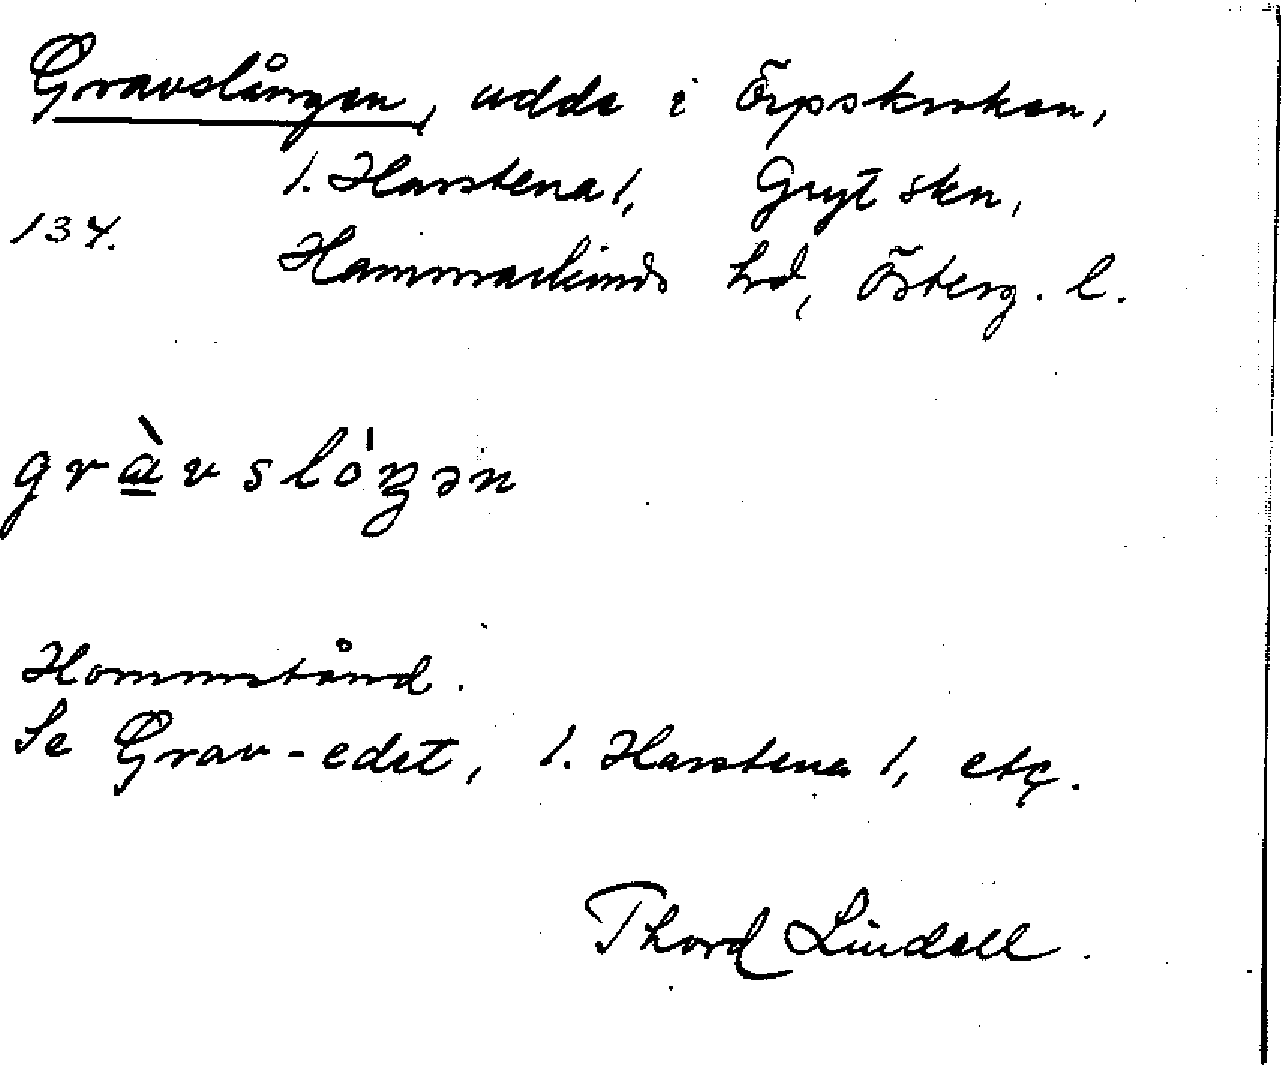 Gravslången, udde i Örpskroken,
1. Harstena 1, Gryt skn,
134.
Hammarkinds hd, Österg. l.
gràvslóŋən
Hommstånd.
Se Grav-edet, 1. Harstena 1, etc.
Thord Lindell.